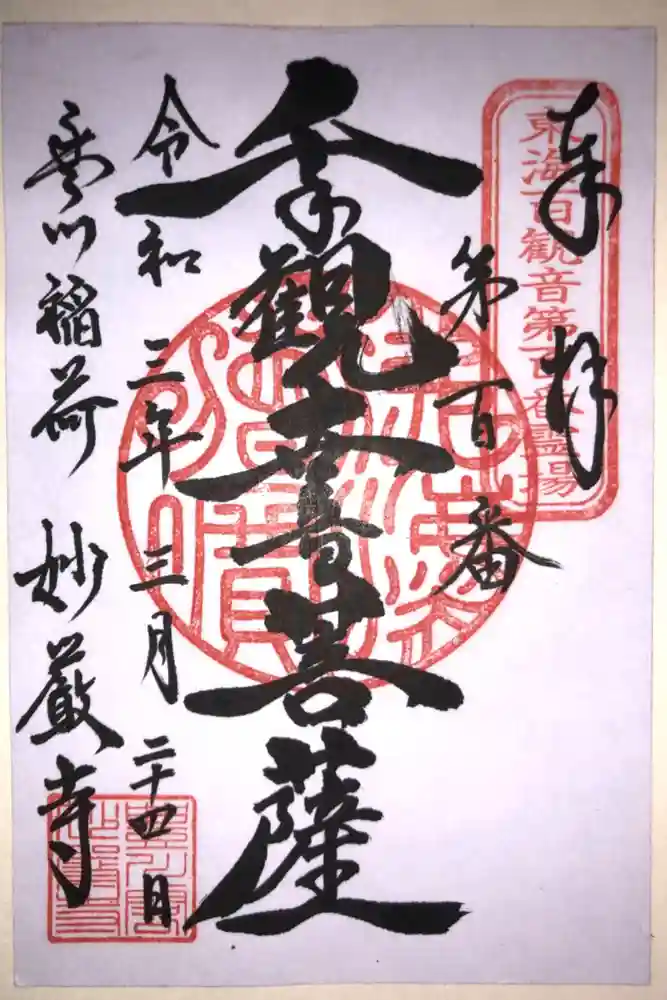 奉拝
東海百観音第百番霊場
第百番
千手觀音菩薩
令和三年三月二十四日
豊川稲荷 妙厳寺